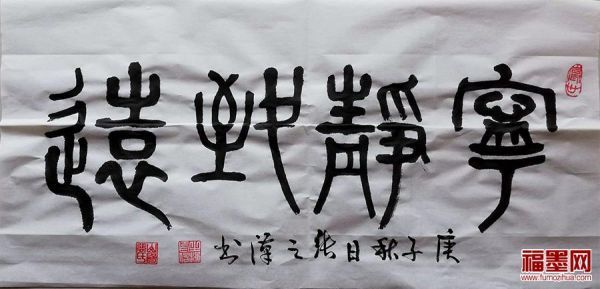 寧靜致遠
庚子秋日張之漢书
福墨网
www.fumozihua.com